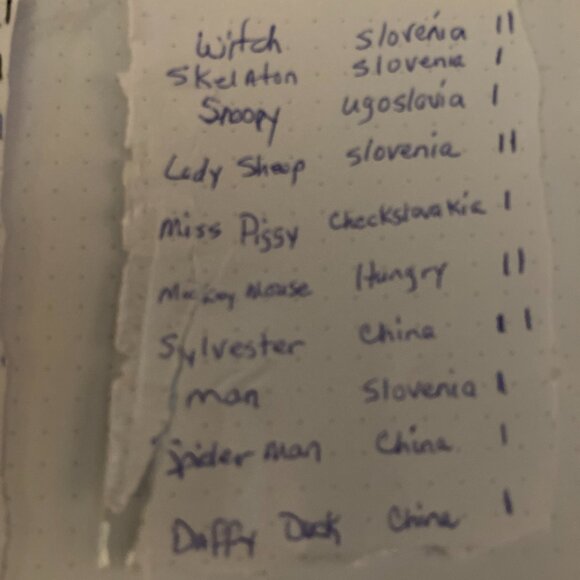 Witch Slovenia II
Skelaton Slovenia I
Snoopy ugoslavia I
Lady Sheep Slovenia II
Miss Piggy Checkslovakia I
Mickey Mouse Hungry II
Sylvester China II
man Slovenia I
Spider man China I
Daffy Duck China I